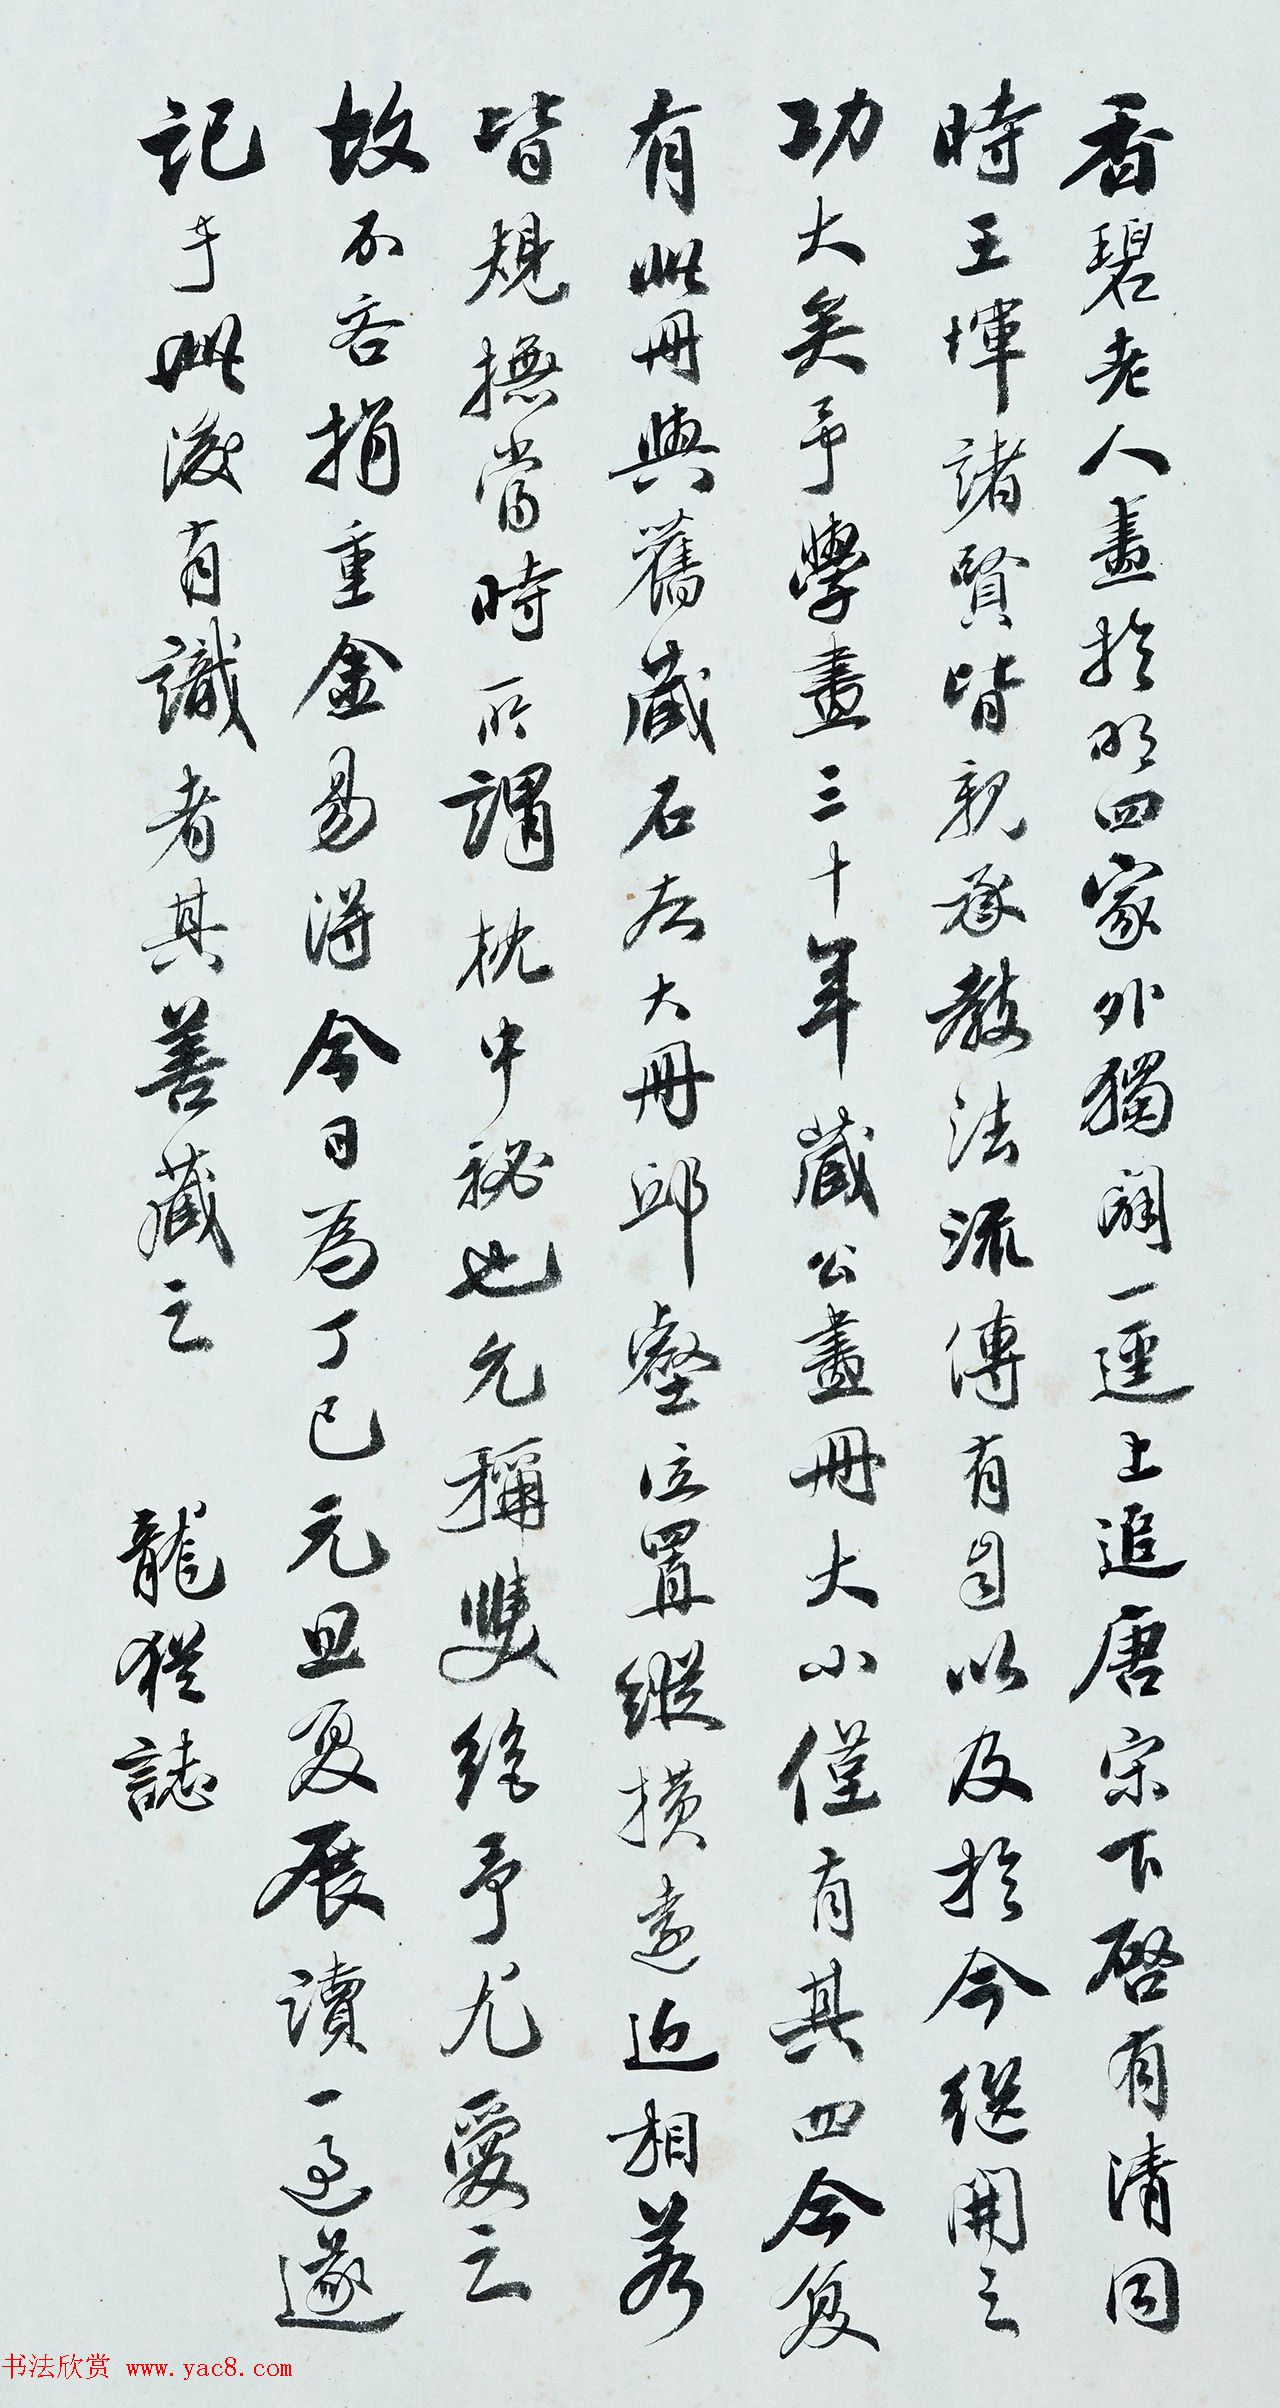 香碧老人畫於明四家外獨闢一逕上追唐宋下啓有清同
時王惲諸賢皆親承教法流傳有自以及於今繼開之
功大矣予學畫三十年藏公畫冊大小僅有其四今復
有此冊與舊藏石右大冊邱壑位置縱橫遠近相若
皆規撫當時所謂枕中秘也允稱雙絕予尤愛之
故不吝捐重金易得今日為丁巳元旦夏展讀一過遂
記于此後有識者其善藏之 龍猶誌
书法欣赏 www.yac8.com